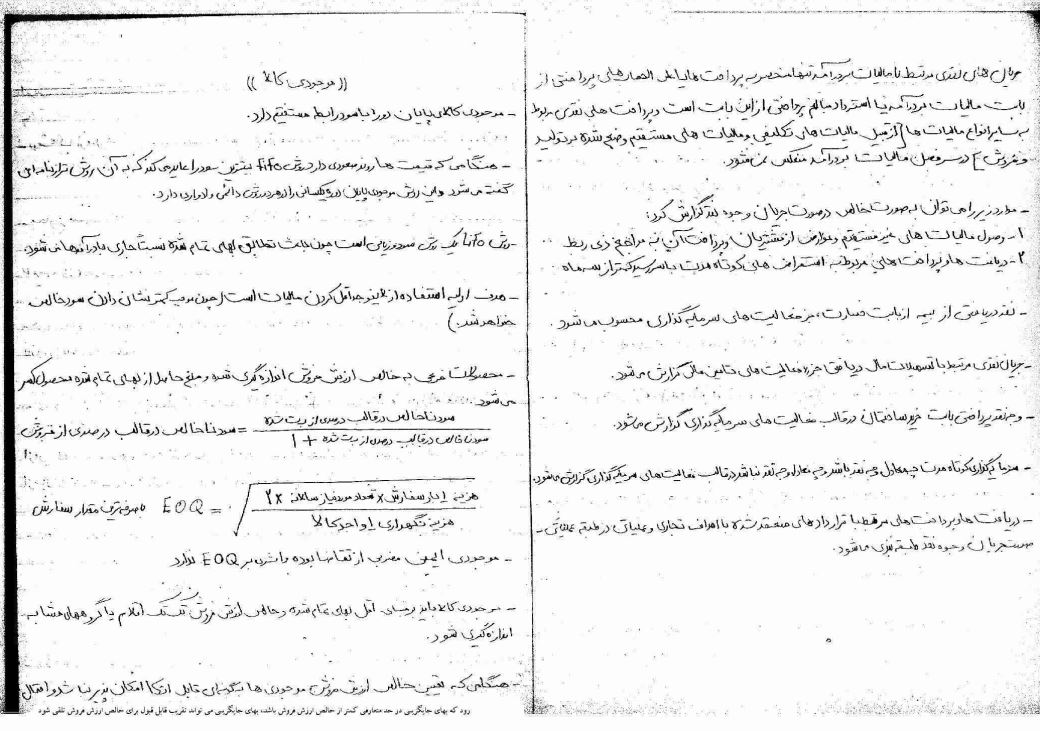 جریان های نقدی مرتبط با مالیات بردرآمد تنها منحصر به پرداخت ها یا علی الحساب های پرداختی از
بابت مالیات بردرآمد یا استرداد مبالغ پرداختی از این بابت است و پرداخت های نقدی مربوط
به سایر انواع مالیات ها [از قبیل مالیات های تکلیفی و مالیات های مستقیم وضع شده بر تولید
و فروش] در سرفصل مالیات بردرآمد منعکس نمی شود.
- موارد زیر را می توان به صورت خالص در صورت جریان وجوه نقد گزارش کرد:
۱- وصول مالیات های غیر مستقیم و عوارض از مشتریان و پرداخت آن به مراجع ذی ربط
۲- دریافت ها و پرداخت های مربوط به استقراض های کوتاه مدت با سررسید کمتر از سه ماه
- نقد دریافتی از بیمه از بابت خسارت، جز فعالیت های سرمایه گذاری محسوب می شود.
- جریان نقدی مرتبط با تسهیلات مالی دریافتی جزء فعالیت های تامین مالی گزارش می شود.
- وجه نقد پرداختی بابت خرید ساختمان در قالب فعالیت های سرمایه گذاری گزارش می شود.
- سرمایه گذاری کوتاه مدت چه معادل وجه نقد باشد و چه معادل وجه نقد نباشد در قالب فعالیت های سرمایه گذاری گزارش می شود.
- دریافت ها و پرداخت های مرتبط با قراردادهای منعقد شده با اهداف تجاری و عملیاتی در طبقه عملیاتی -
صورت جریان وجوه نقد طبقه بندی می شود.
((موجودی کالا))
- موجودی کالای پایان دوره با سود رابطه مستقیم دارد.
- هنگامی که قیمت ها روند صعودی دارد روش fifo بیشترین سود را عاید می کند که به آن روش ترازنامه ای
گفته می شود و این روش موجودی پایان دوره یکسانی را در هر دو روش دائمی و ادواری دارد.
- روش lifo یک روش سود و زیانی است چون باعث تطابق بهای تمام شده نسبتا جاری با درآمدها می شود.
- هدف اولیه استفاده از لایفو حداقل کردن مالیات است (چون موجب کمتر نشان دادن سود خالص
خواهد شد.)
- محصولات فرعی به خالص ارزش فروش اندازه گیری شده و مبلغ حاصل از بهای تمام شده محصول کسر
می شود.
سود ناخالص در قالب درصدی از فروش = سود ناخالص در قالب درصدی از بهای تمام شده
سود ناخالص در قالب درصدی از بهای تمام شده + 1
باصرفه ترین مقدار سفارش EOQ = √ هزینه هر بار سفارش × تعداد مورد نیاز سالانه × ۲
هزینه نگهداری ۱ واحد کالا
- موجودی ایمنی مضربی از تقاضا بوده و اثری بر EOQ ندارد
- موجودی کالا باید بر مبنای اقل بهای تمام شده و خالص ارزش فروش تک تک اقلام یا گروه های مشابه
اندازه گیری شود.
- هنگامی که تعیین خالص ارزش فروش موجودی ها به گونه ای قابل اتکا امکان پذیر نباشد و احتمال
رود که بهای جایگزینی در حد متعارفی کمتر از خالص ارزش فروش باشد، بهای جایگزینی می تواند تقریب قابل قبول برای خالص ارزش فروش تلقی شود